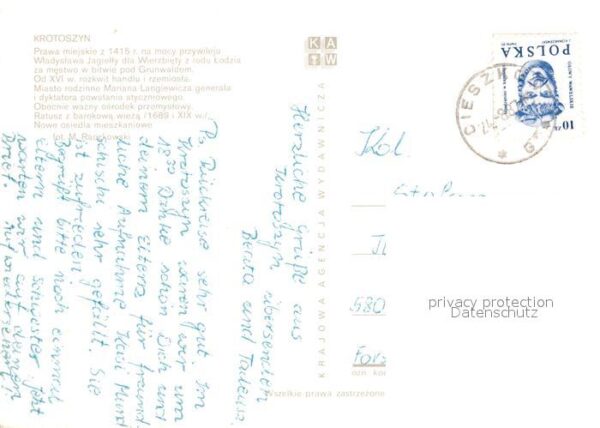 KROTOSZYN
Prawa miejskie z 1415 r. na mocy przywileju
Władysława Jagiełły dla Wierzbięty z rodu Łodzia
za męstwo w bitwie pod Grunwaldem.
Od XVI w. rozkwit handlu i rzemiosła.
Miasto rodzinne Mariana Langiewicza generała
i dyktatora powstania styczniowego.
Obecnie ważny ośrodek przemysłowy.
Ratusz z barokową wieżą /1689 i XIX w./
Nowe osiedla mieszkaniowe
fot. M. Raczkowski
KAW
KRAJOWA AGENCJA WYDAWNICZA
POLSKA
10 ZŁ
CIESZK
Herzliche Grüße aus
Krotoszyn übersenden
Beata und Tadeusz.
Ps. Rückreise sehr gut. In
Krotoszyn waren wir um
18³⁰. Danke schön Dich und
deinen Eltern für freund-
liche Aufnahme.
sehr gefällt. Sie
ist zufrieden.
Begrüß bitte noch einmal
Eltern und Schwester. Jetzt
warten wir auf deinen
Brief.
Kol.
580
privacy protection
Datenschutz
Wszelkie prawa zastrzeżone